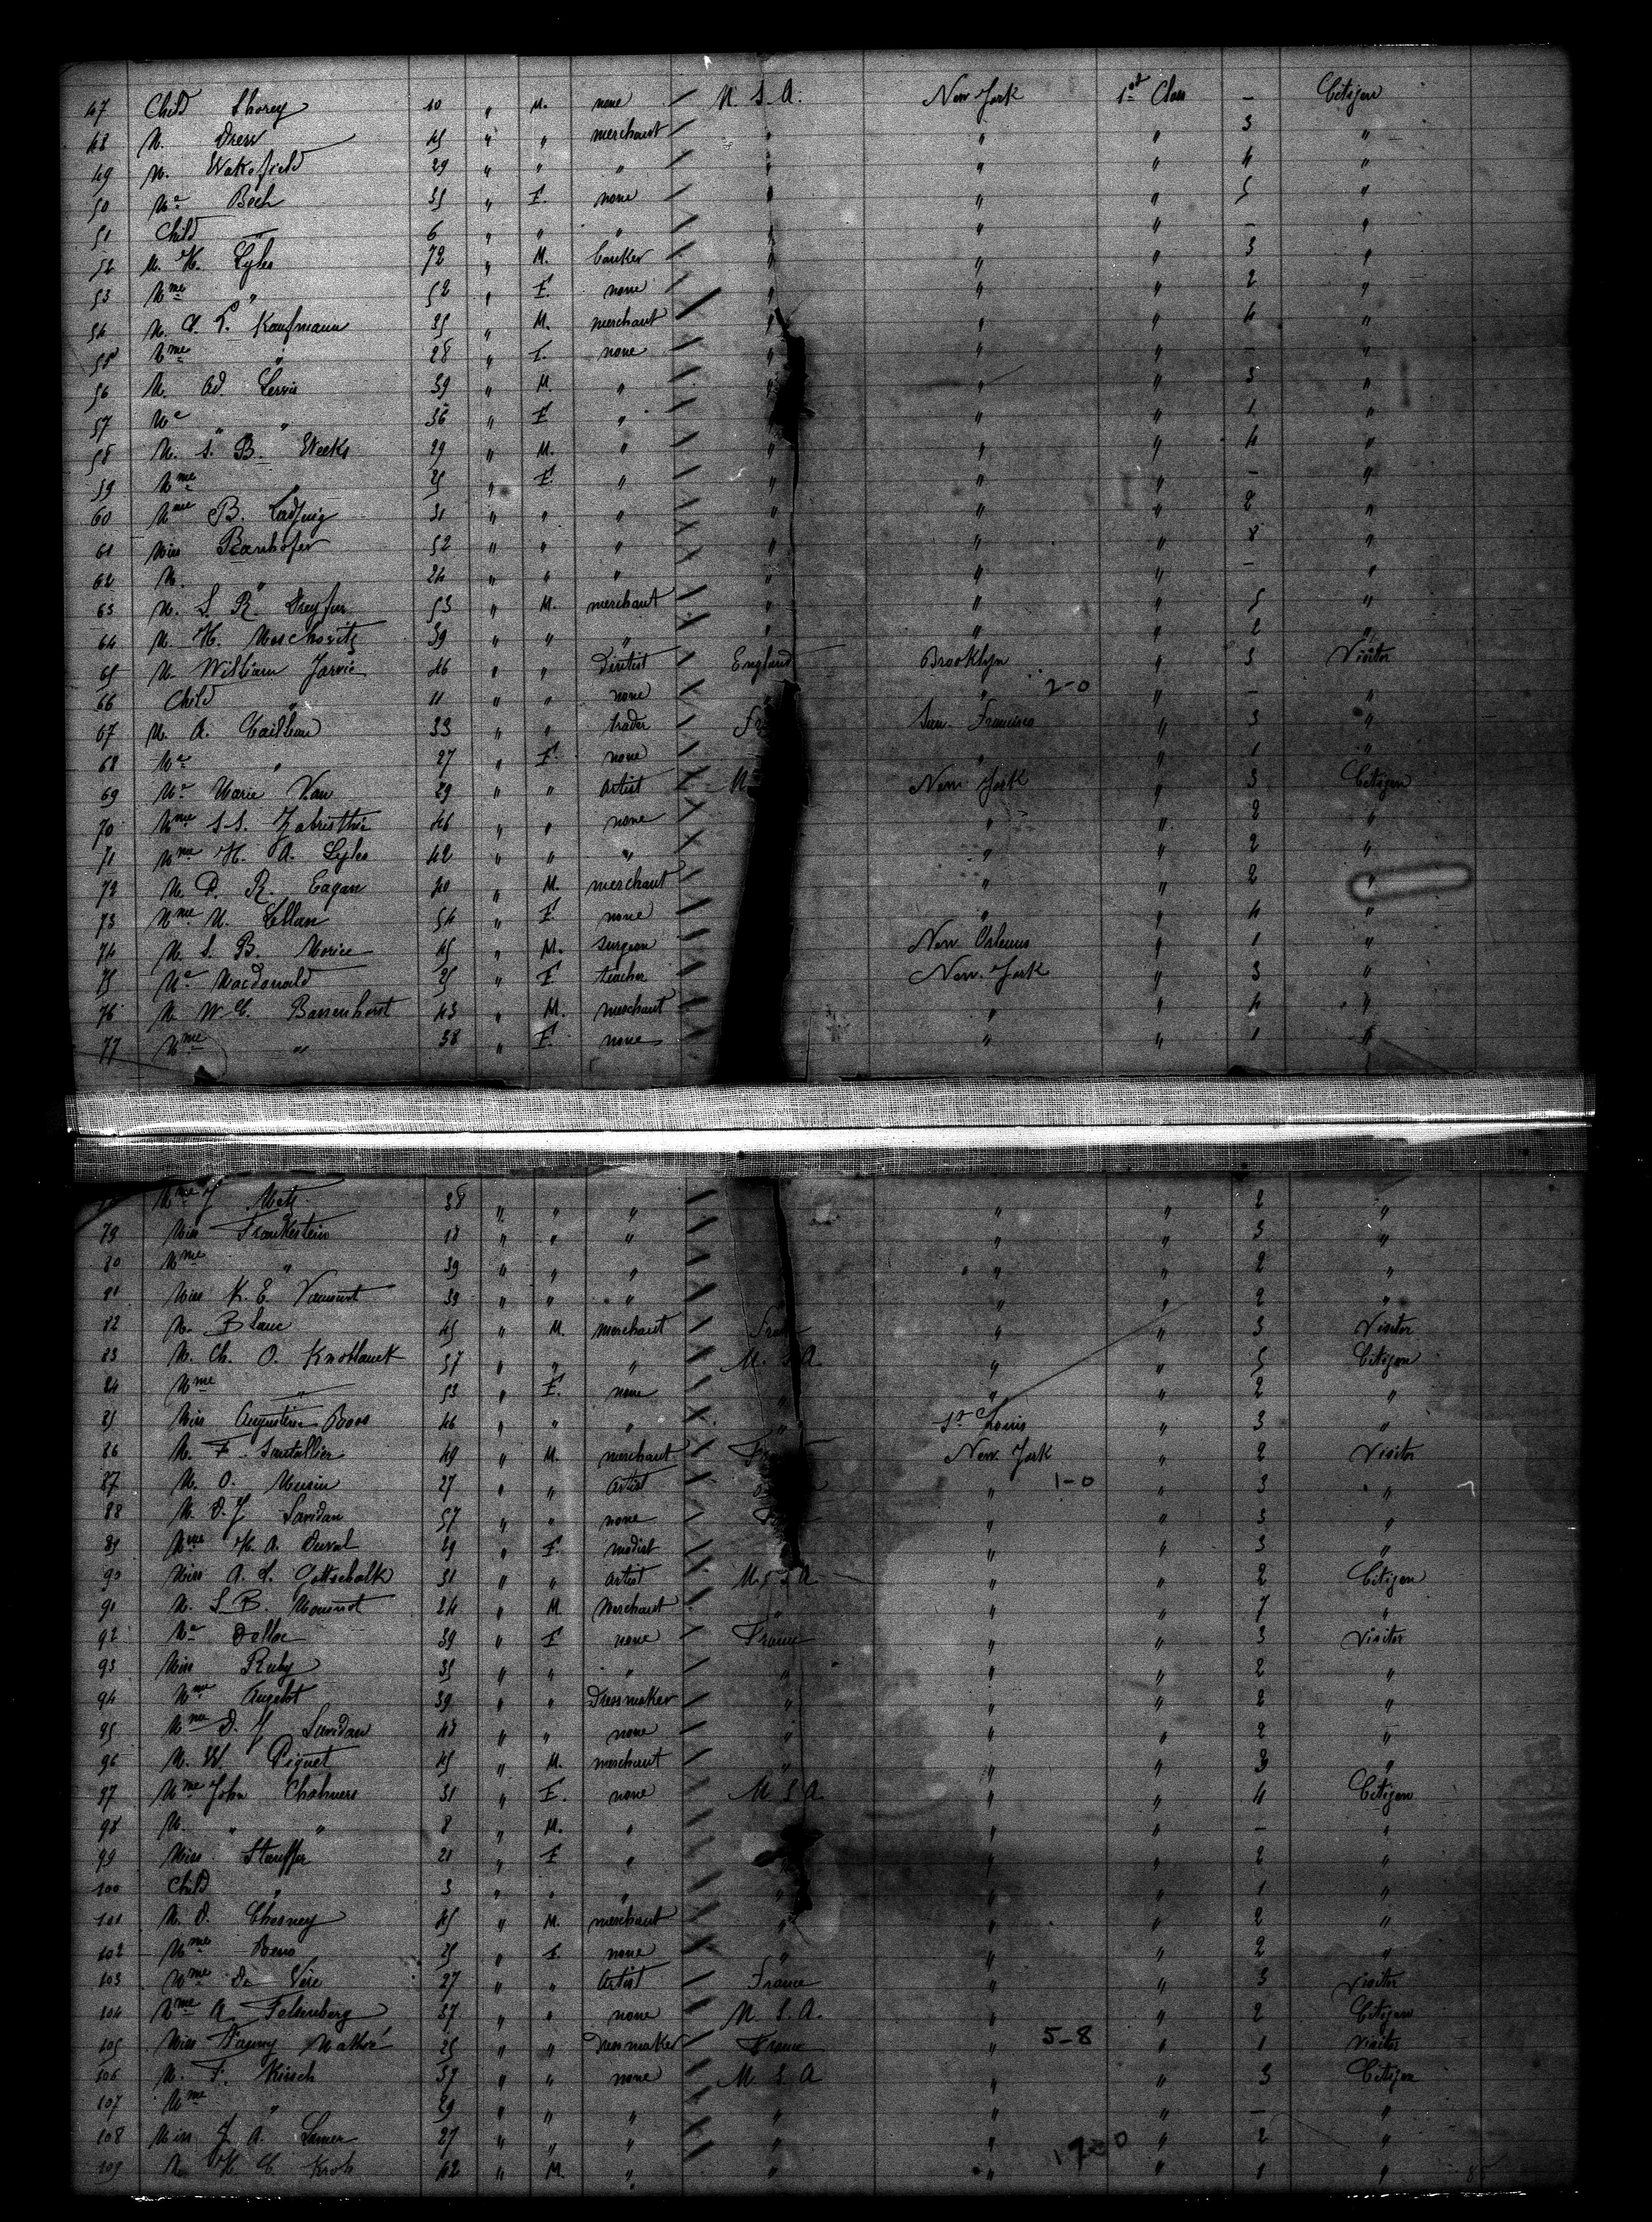 47 Child Shorey 10 " M. none / U. S. A. New York 1st Class - Citizen
48 M. Drew 45 " " merchant / " " " 3 "
49 M. Wakefield 29 " " " / " " " 4 "
50 Me Bech 35 " F. none / " " " 5 "
51 Child " 6 " " " / " " " - "
52 M. H. Lyles 72 " M. banker / " " " 3 "
53 Mme " 52 " F. none / " " " 2 "
54 M. Kaufmann 35 " M. merchant / " " " 4 "
55 Mme " 28 " F. none / " " " - "
56 M. Ad. 39 " M. " / " " " 3 "
57 Me " " 36 " F " / " " " 1 "
58 M. S. B. Weeks 29 " M. " / " " " 4 "
59 Mme " 25 " F " / " " " - "
60 Mme B. Ladjuig 31 " " " " " " 2 "
61 Miss Ranhofer 52 " " " " " " 8 "
62 M. " 24 " " " " " " - "
63 M. S. R. Dreyfus 53 " M. merchant / " " " 5 "
64 M. H. Moschovitz 39 " " " / " " " 2 "
65 M. William Jarvie 46 " " Dentist / England Brooklyn " 3 Visitor
66 Child " 11 " " none / " 2-0 " - "
67 M. A. Cailleau 33 " " trader / San Francisco " 3 "
68 Me " 27 " F. none / " " 1 "
69 Me Marie Van 29 " " Artist New York " 3 Citizen
70 Mme S. S. Zabristhie 46 " " none " " 2 "
71 Mme H. A. Lyles 42 " " " " " 2 "
72 M. D. R. Eagan 40 " M. merchant / " " 2 "
73 Mme M. Lellan 54 " F. none / " " 4 "
74 M. S. B. Morice 45 " M. surgeon / New Orleans " 1 "
75 Me Macdonald 25 " F teacher / New York " 3 "
76 M. W. C. Bassenhorst 43 " M. merchant / " " 4 "
77 Mme " 38 " F. none / " " 1 "
Mme J. Mett 38 " " " / " " 2 "
79 Miss Frankestein 18 " " " / " " 3 "
80 Mme " 39 " " " / " " 2 "
81 Miss K. E. 39 " " " / " " 2 "
82 M. Blanc 45 " M. merchant / " " 3 Visitor
83 M. Ch. O. Knoblauck 57 " " " / U. S. A. " " 5 Citizen
84 Mme " 53 " F. none / " " " 2 "
85 Miss Augustine Boos 46 " " " / " St Louis " 3 "
86 M. F. Smitallier 49 " M. merchant / New York " 2 Visitor
87 M. O. Musin 27 " " Artist / " 1-0 " 3 "
88 M. D. J. Lavidan 57 " " none / " " 3 "
89 Mme H. A. Duval 29 " F. modist / " " 3 "
90 Miss A. L. Gottschalk 31 " " Artist / U. S. A " " 2 Citizen
91 M. S. B. 24 " M. Merchant " " " 7 "
92 Me Delloc 39 " F none / France " " 3 Visitor
93 Miss Ruby 35 " " " / " " " 2 "
94 Mme Angelot 39 " " Dressmaker " " " 2 "
95 Mme D. J. Lavidan 48 " " none / " " " 2 "
96 M. W. Piquet 45 " M. merchant / " " " 3 "
97 Mme John Chalmers 31 " F. none / U. S. A. " " 4 Citizen
98 M. " " 8 " M. " / " " - "
99 Miss Stauffer 21 " F " / " " 2 "
100 Child " 3 " " " / " " " 1 "
101 M. D. Chesney 45 " M. merchant / " " " 2 "
102 Mme Beno 25 " F. none " " " 2 "
103 Mme De Vere 27 " " Artist / France " " 3 Visitor
104 Mme A. Felsenberg 37 " " none / U. S. A. " " 2 Citizen
105 Miss Fanny Mathé 25 " " Dressmaker France " 5-8 " 1 Visitor
106 M. F. Kirsch 37 " " none / U. S. A " " 3 Citizen
107 Mme " 29 " " " / " " " - "
108 Miss J. A. Lamer 27 " " " / " " " 2 "
109 M. H. C. Kroh 42 " M. " " " " 1 "